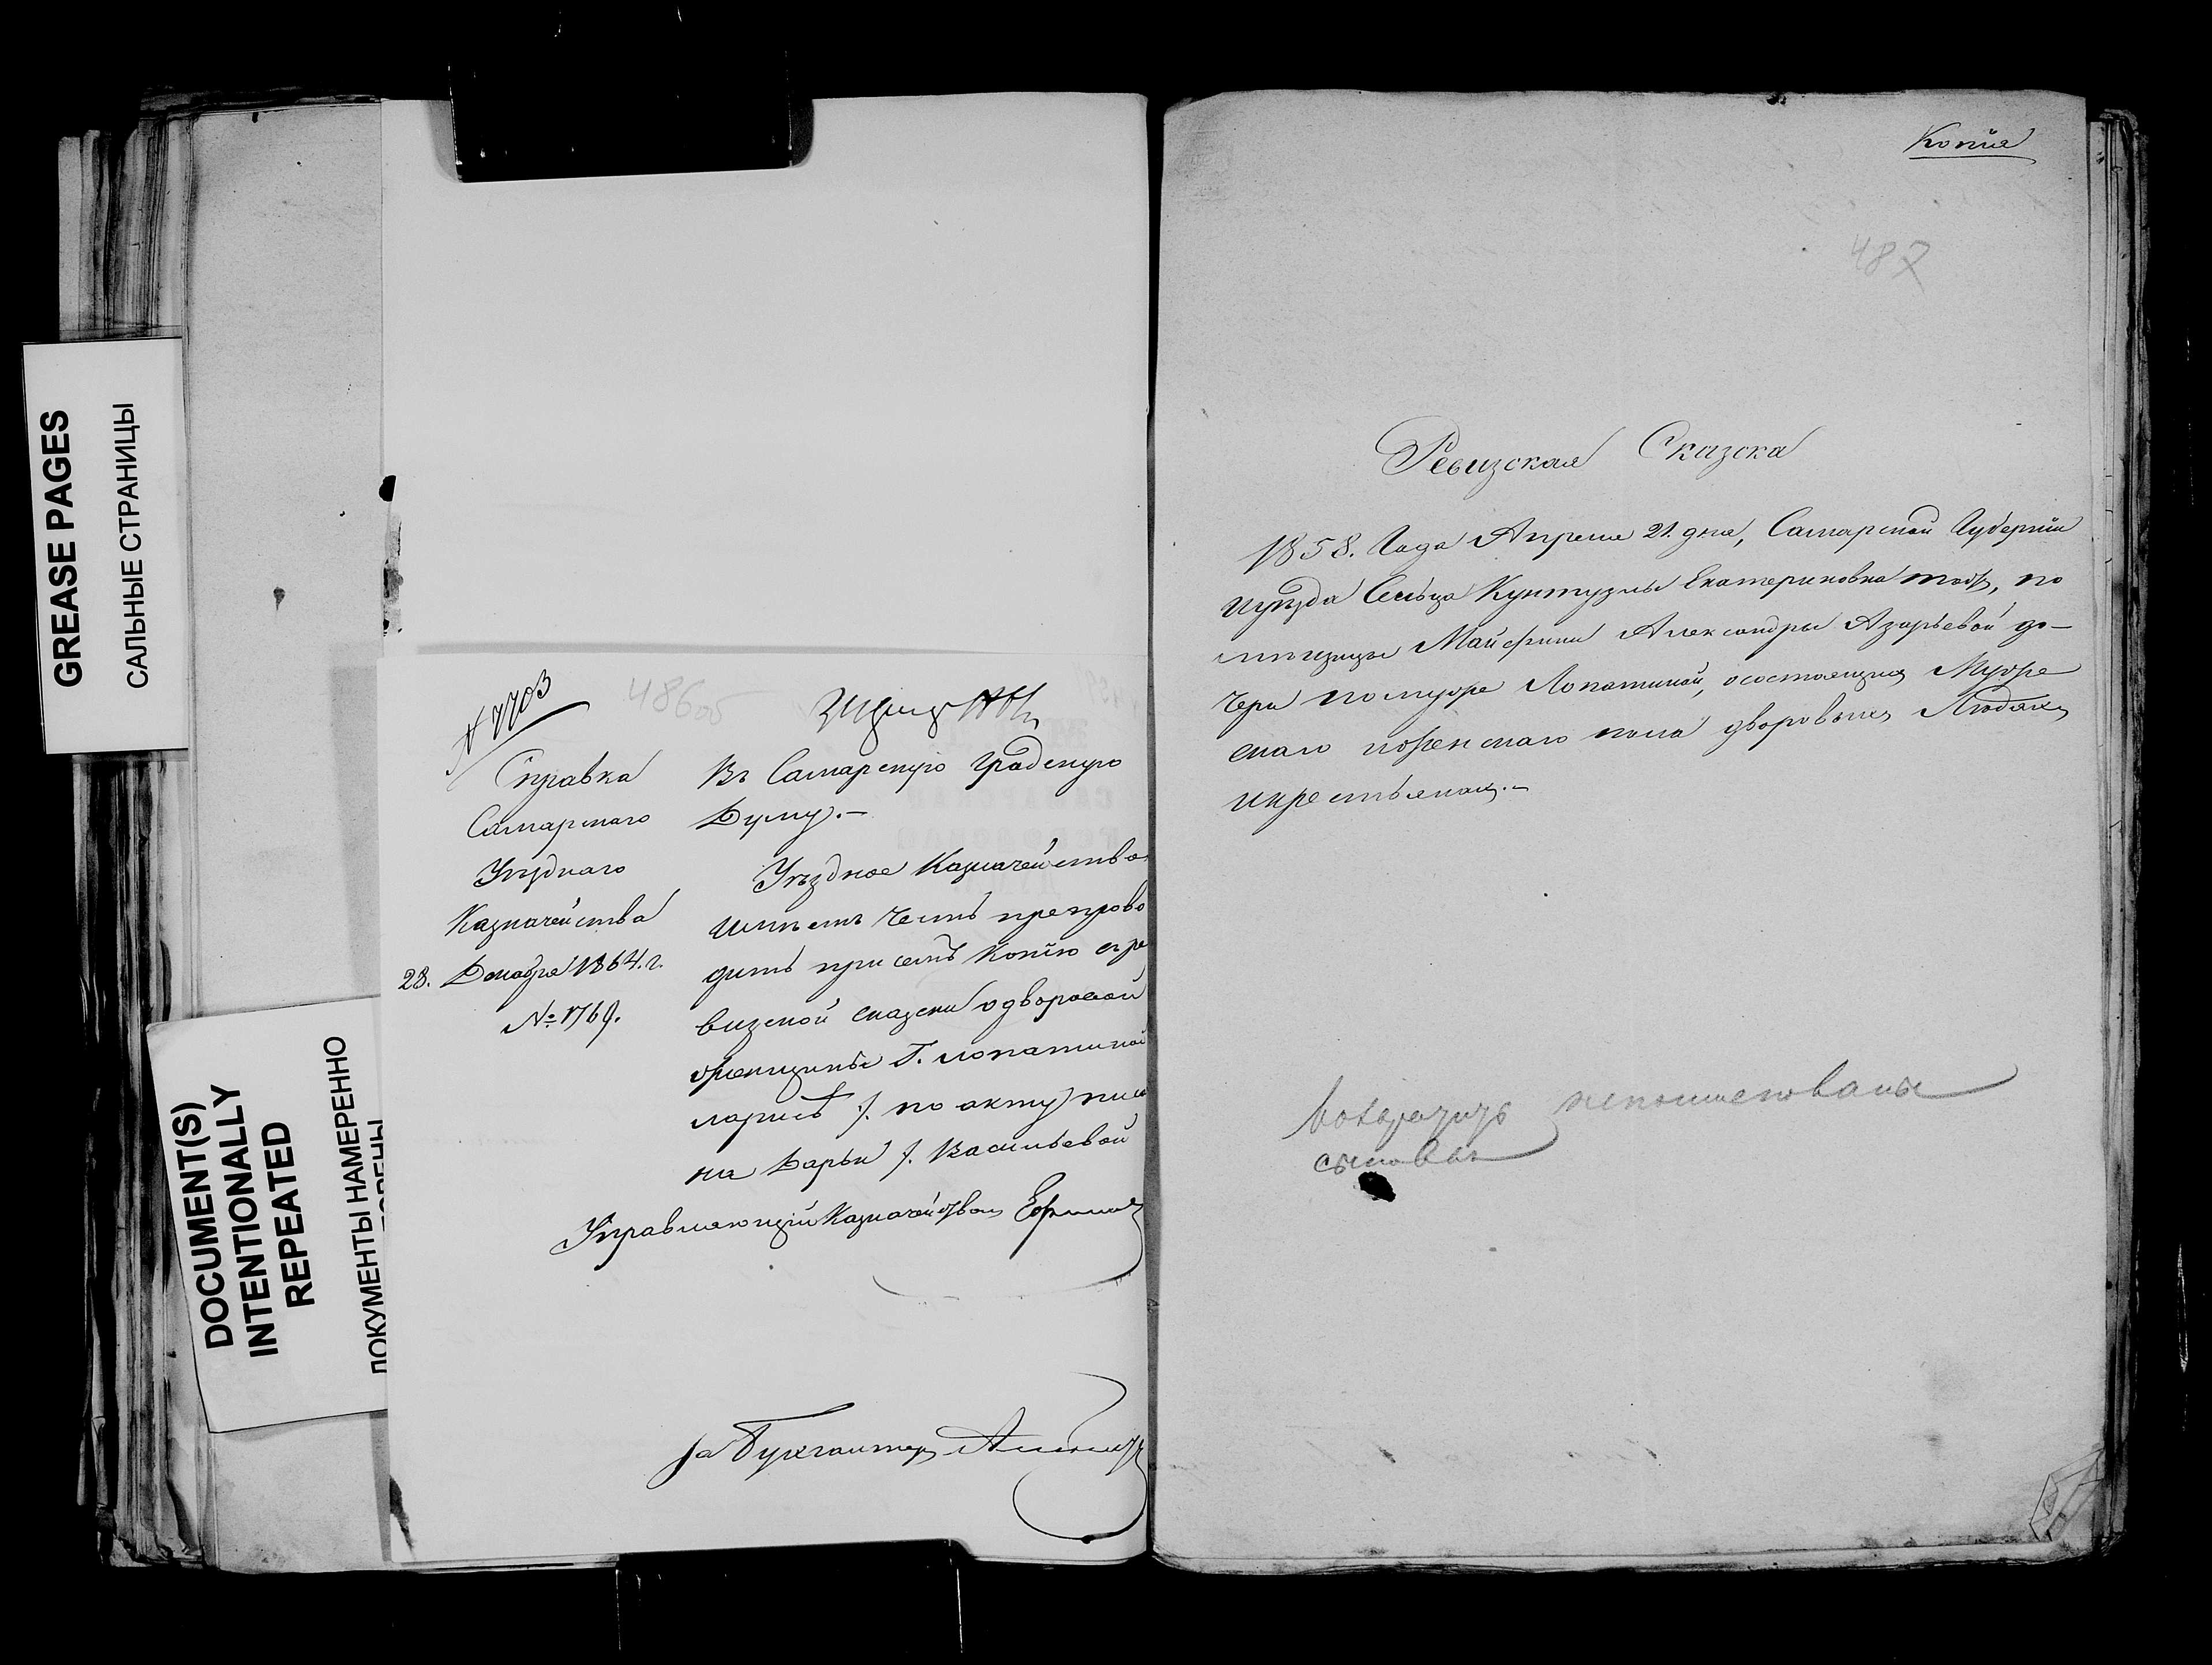 GREASE PAGES
САЛЬНЫЕ СТРАНИЦЫ
DOCUMENT(S)
INTENTIONALLY
REPEATED
ДОКУМЕНТЫ НАМЕРЕННО
№ 7703
486об
Справка
Самарскаго
Уѣзднаго
Казначейства
28. Декабря 1864. г.
№ 1769.
Въ Самарскую Градскую
Думу.—
Уѣздное Казначейство
имѣетъ честь препрово
дить при семъ копію съ ре
визской сказки о дворовой
женщинѣ Г. Лопатиной
Ларисѣ /. по акту
на Дарьи /. Васильевой
Управляющій Казначействомъ Ефимовъ
За Бухгалтера
Копія
487
Ревизская Сказка
1858. Года Апреля 21. дня, Самарской Губерніи
и уѣзда Сельца Кунтузлы Екатериновка тожъ, по
мѣщицы Маіорши Александры Азарьевой до-
чери по мужѣ Лопатиной, о состоящихъ Мужс
скаго и женскаго пола дворовыхъ Людяхъ
и крестьянахъ.—
непоименованы
сыновья